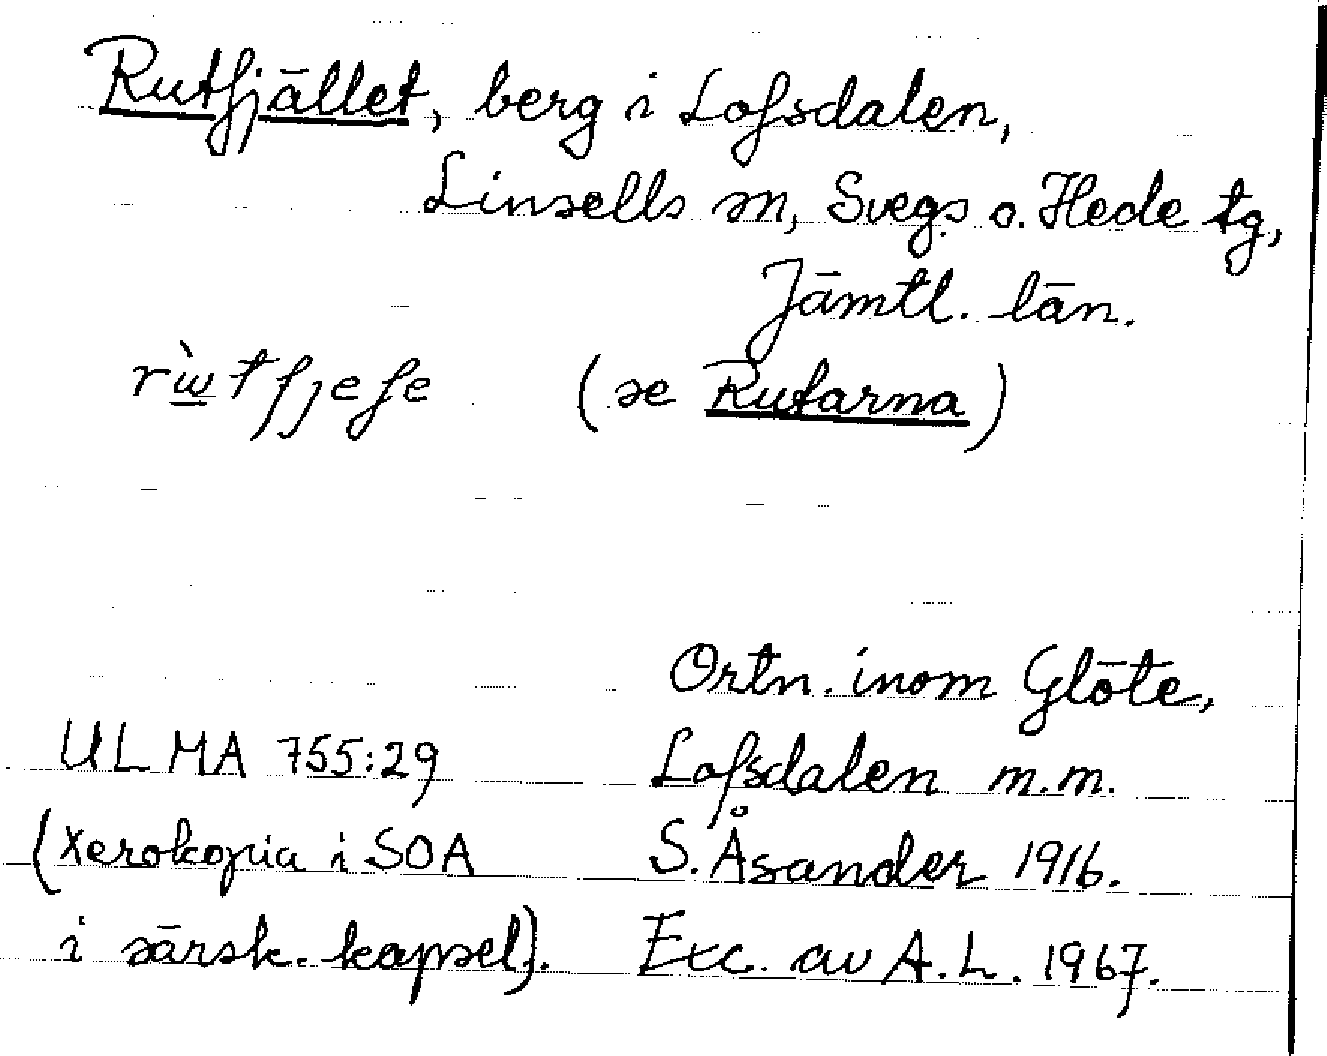 Rutfjället, berg i Lofsdalen,
Linsells sn, Svegs o. Hede tg,
Jämtl. län.
(se Rutarna)
Ortn. inom Glöte,
ULMA 755:29 Lofsdalen m.m.
(Xerokopia i SOA S. Åsander 1916.
i särsk. kapsel). Exc. av A.L. 1967.